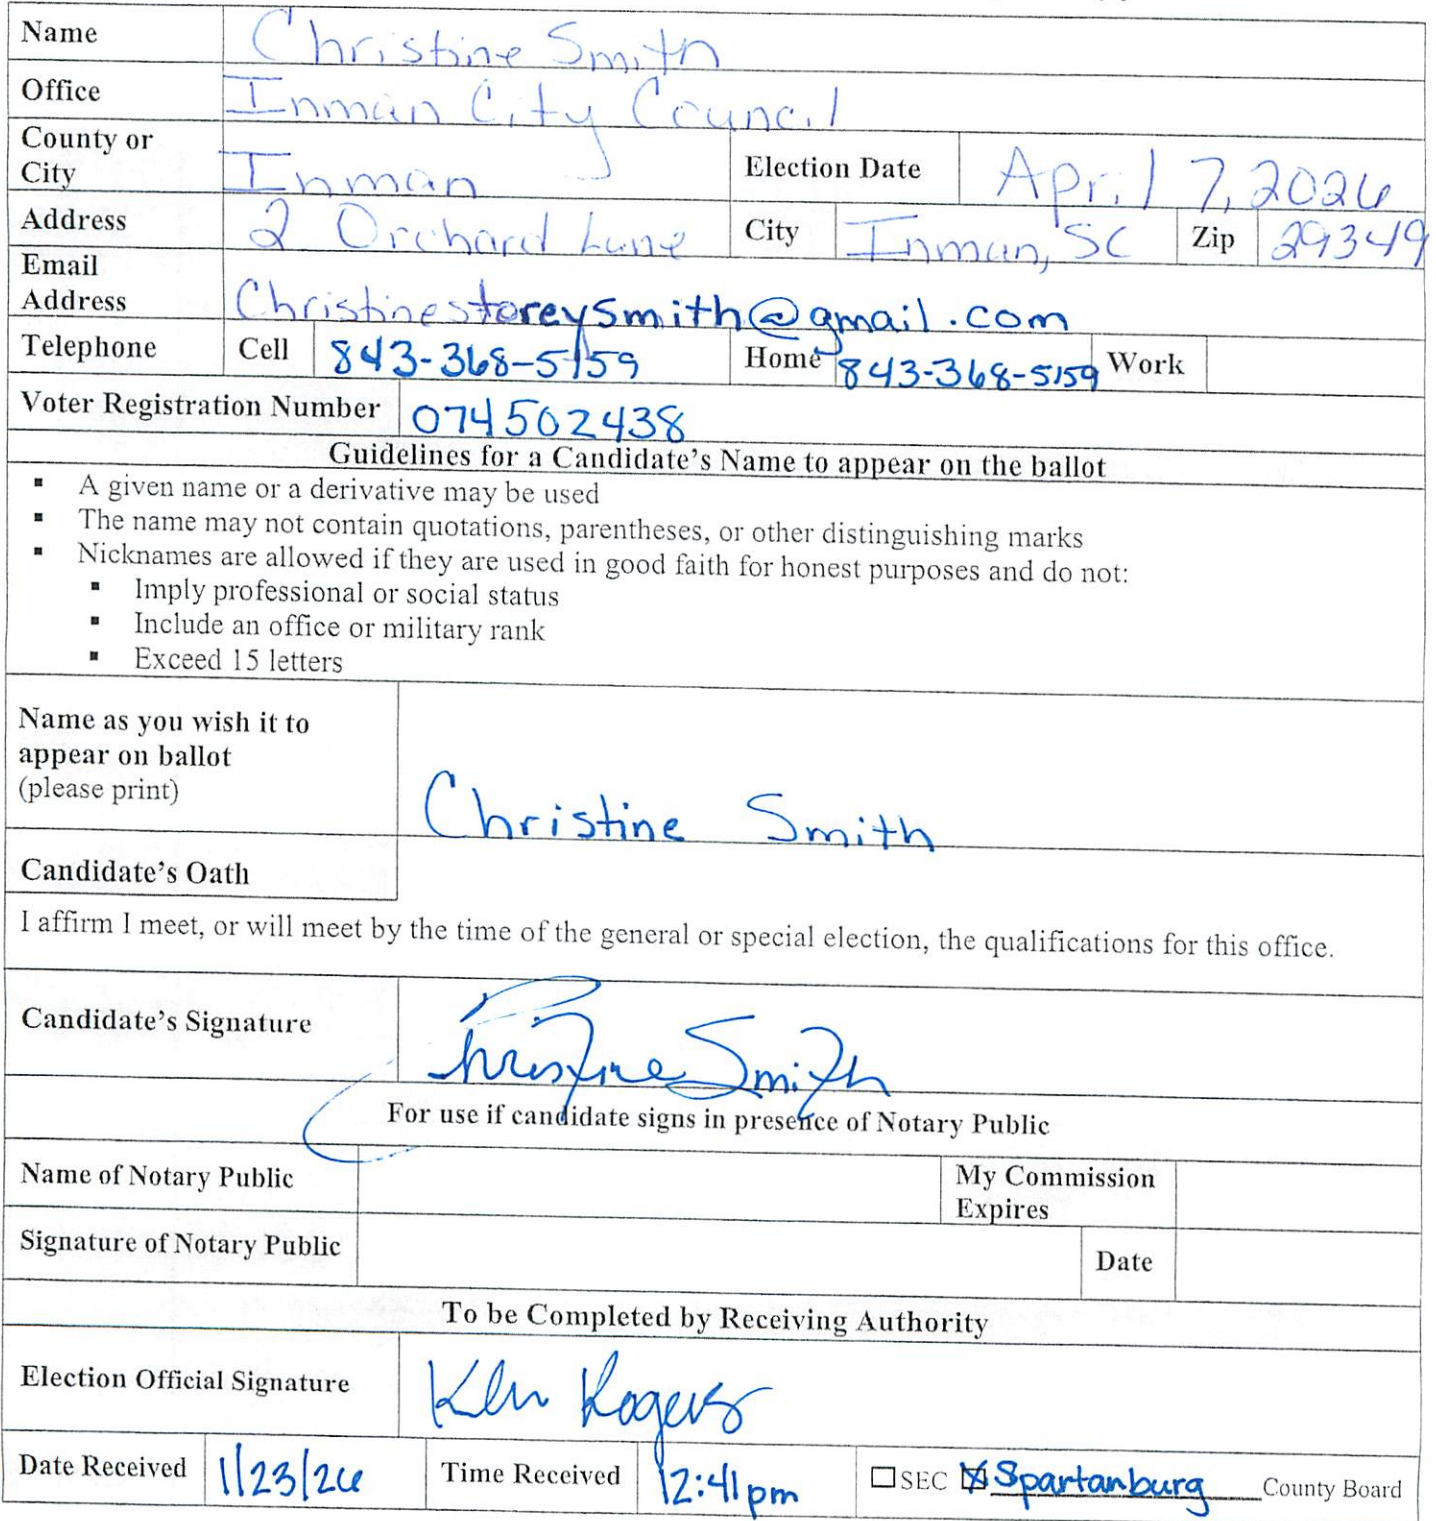 Name Christine Smith
Office Inman City Council
County or City Inman Election Date April 7, 2026
Address 2 Orchard Lane City Inman, SC Zip 29349
Email Address Christinestoreysmith@gmail.com
Telephone Cell 843-368-5159 Home 843-368-5159 Work
Voter Registration Number 074502438
Guidelines for a Candidate's Name to appear on the ballot
▪ A given name or a derivative may be used
▪ The name may not contain quotations, parentheses, or other distinguishing marks
▪ Nicknames are allowed if they are used in good faith for honest purposes and do not:
▪ Imply professional or social status
▪ Include an office or military rank
▪ Exceed 15 letters
Name as you wish it to
appear on ballot
(please print) Christine Smith
Candidate's Oath
I affirm I meet, or will meet by the time of the general or special election, the qualifications for this office.
Candidate's Signature Christine Smith
For use if candidate signs in presence of Notary Public
Name of Notary Public My Commission Expires
Signature of Notary Public Date
To be Completed by Receiving Authority
Election Official Signature Ken Rogers
Date Received 1/23/26 Time Received 12:41pm ☐ SEC ☒ Spartanburg County Board